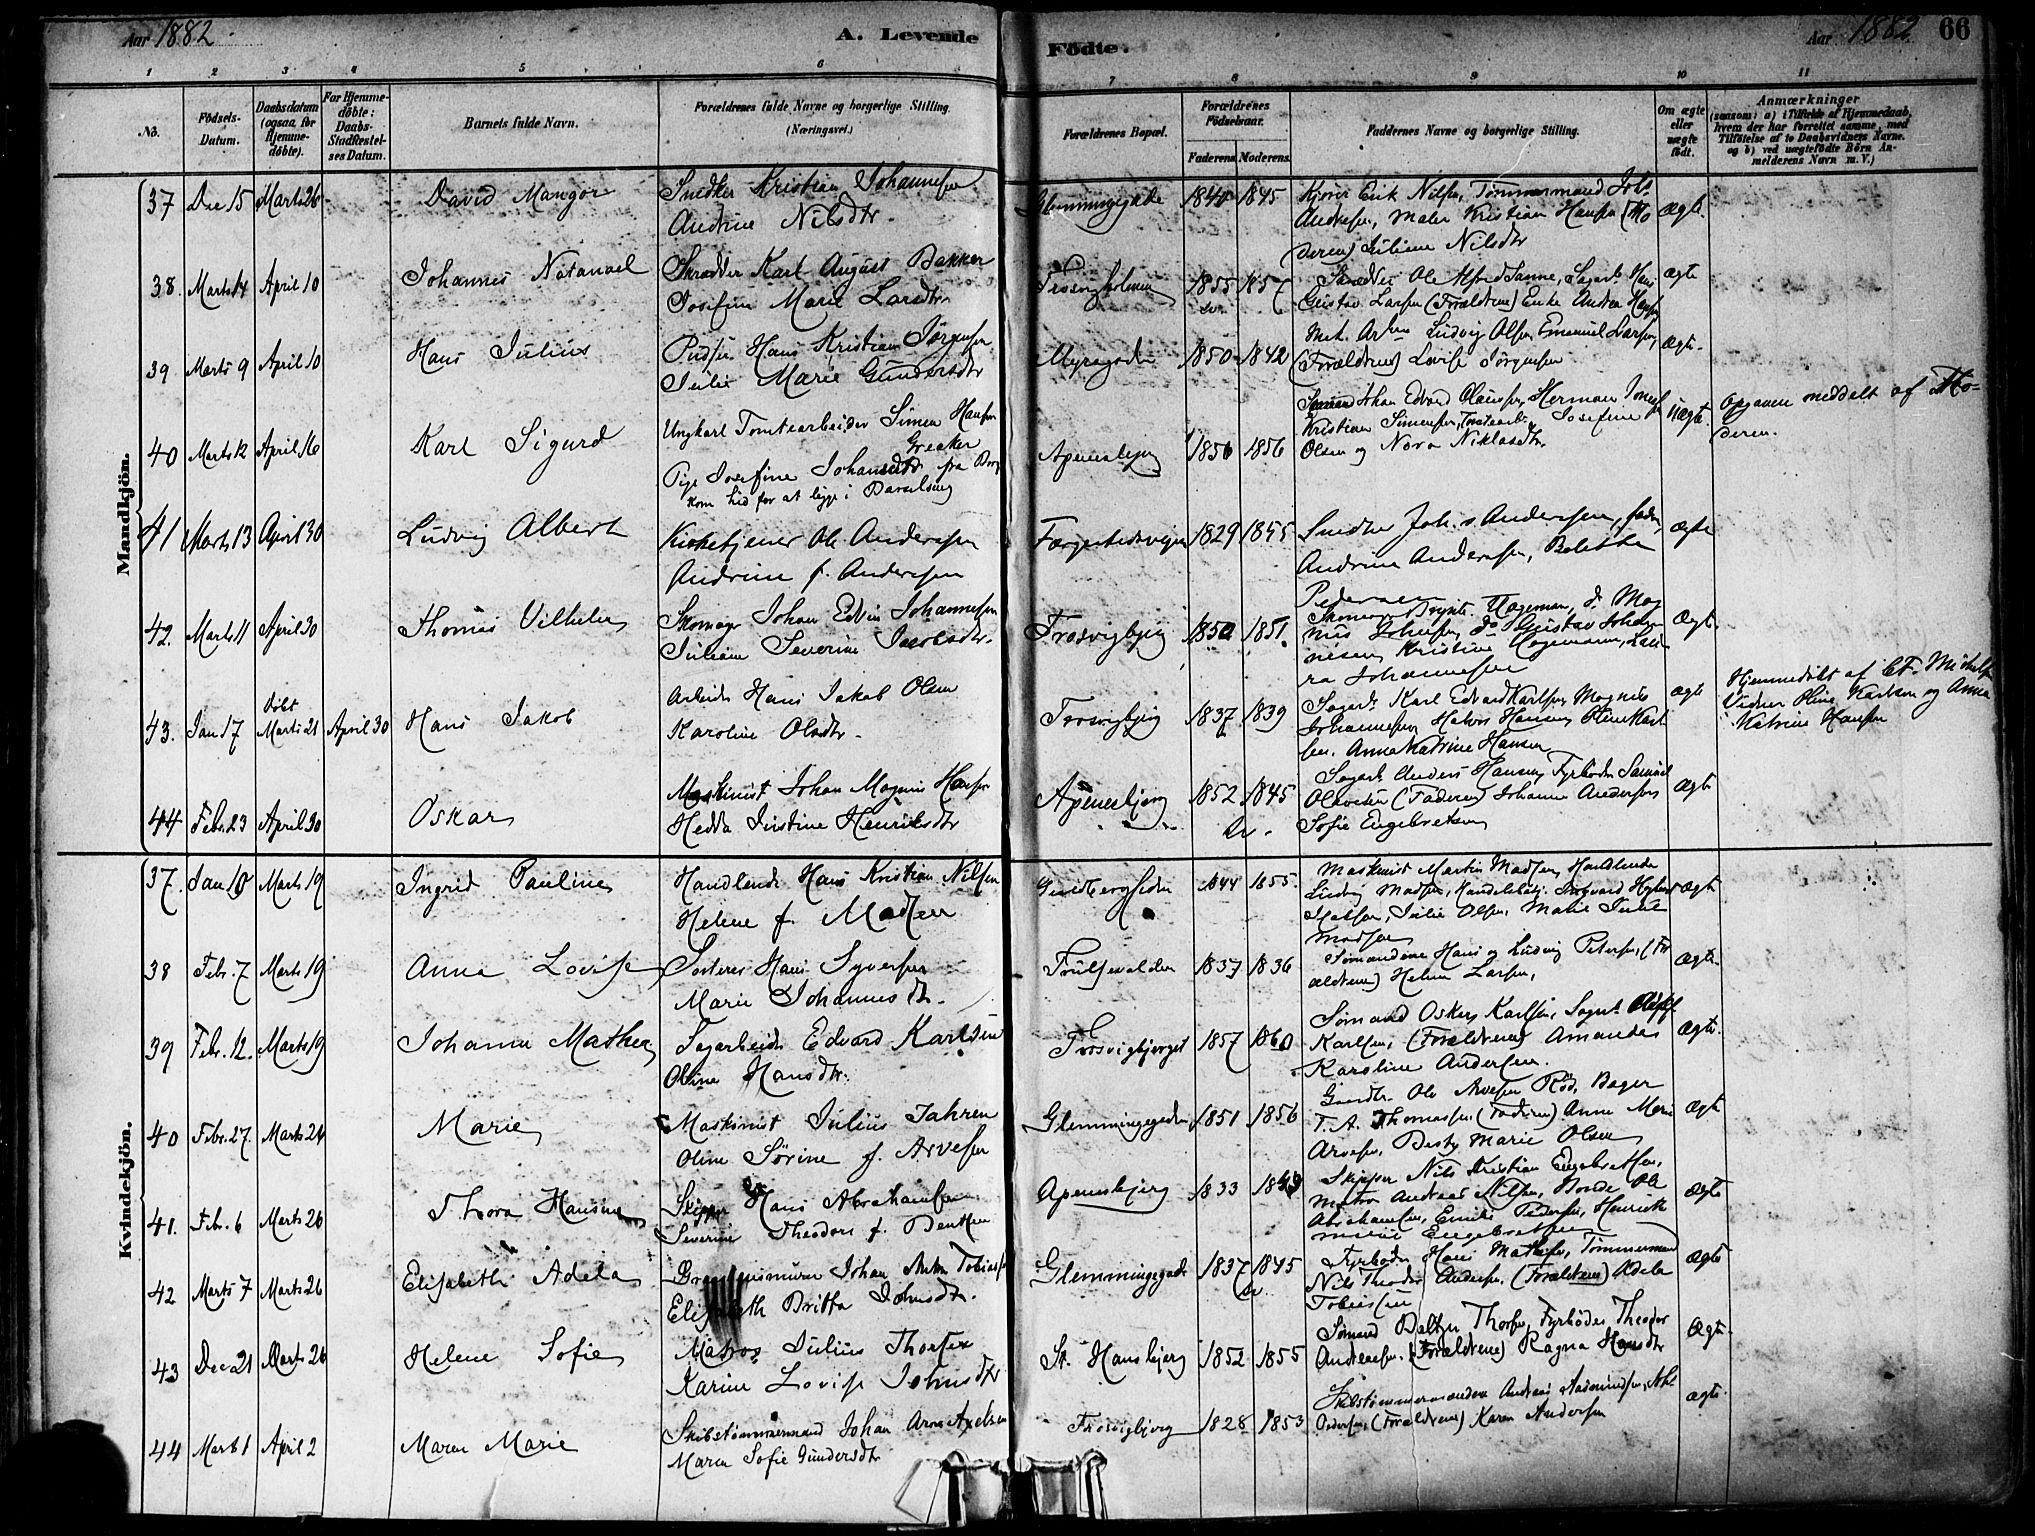 Aar 1882
A. Levende
Födte.
Aar 1882
66
1 2 3 4 5 6 7 8 9 10 11
No.
Födsels-Datum.
Daabsdatum (ogsaa for Hjemme-döbte).
For Hjemme-döbte: Daabs-Stadfæstel-ses Datum.
Barnets fulde Navn.
Forældrenes fulde Navne og borgerlige Stilling.
(Næringsvei.)
Forældrenes Bopæl.
Forældrenes Födselsaar.
Faderens. Moderens.
Faddernes Navne og borgerlige Stilling.
Om ægte eller uægte födt.
Anmærkninger
(saasom: a) i Tilfælde af Hjemmedaab,
hvem der har forrettet samme, med
Tilföielse af to Daabsvidners Navne.
og b) ved uægtefödte Börn An-
melderens Navn m. V.)
Mandkjön.
37 Dec 15 Marts 26 David Mangor
Snedker Kristian Johannesen
Andrine Nilsdtr.
Glemmingegade 1840 1845
Erik Nilsen, Tømmermand
Andresen, Maler Kristian Hansen
deren) Juliane Nilsdtr
Ægte
38. Marts 14 April 10 Johannes Natanael
Skrædder Karl August Bakker
Josefine Marie Larsdtr.
Trosvigholmen 1855 1857
Skrædder Ole Alfred Sanne, Sagarb. Hans
Gustav Larsen (Forældrene) Enke Andrea Hansen
Ægte
39 Marts 9 April 10 Hans Julius
Pudser Hans Kristian Jørgensen
Julie Marie Gundersdtr
Myregaden 1850 1842
Ludvig Olsen, Emanuel Larsen,
(Forældrene) Lovise Jørgensen
Ægte.
40 Marts 12 April 16 Karl Sigurd
Ungkarl Tomtearbeider Simen Hansen
Greaker
Pige Josefine Johansdtr fra Borge
kom hid for at ligge i Barselseng
Apenesbjerg 1856 1856
Sømand Johan Edvard Olausen, Herman
Kristian Simensen, Tomtearb. Josefine
Olsen og Nora Niklasdtr.
Uægte.
Opgaven meddelt af Mo-
deren.
41 Marts 13 April 30 Ludvig Albert
Kirketjener Ole Andersen
Andrine f. Andersen
Færgestedsveien 1829 1845
Snedker Joh. Andersen, faderen,
Andrine Andersen, Bolette
Pedersen
Ægte
42. Marts 11 April 30 Thomas Vilhelm
Skomager Johan Edvin Johannesen
Juliane Severine Jakobsdtr.
Trosvigbjerg 1850 1851
Skomager Hageman, do Mag
nus Johnsen, do Gustav Johan
nesen, Kristine Hagemann, Lau
ra Johannesen
Ægte.
43. Jan 17 døbt Marts 21 April 30 Hans Jakob
Arbeider Hans Jakob Olsen
Karoline Olsdtr.
Trosvigbjerg 1837 1839
Sagarb. Karl Edvard Karlsen, Magnus
Johannesen, Halvor Hansen, Oline Karl
sen. Anna Katrine Hansen
Ægte
Hjemmedøbt af C.F. Michelsen
Vidner Oline Karlsen og Anna
Katrine Hansen
44 Febr. 23 April 30 Oskar
Maskinist Johan Magnus Hansen
Hedda Justine Henriksdtr
Apenesbjerg 1852 1845
Sv.
Sagarb. Anders Hansen, Fyrbøder Samuel
Olavesen (Faderen) Johanne Andersen
Sofie Engebretsen
Ægte
Kvindekjön.
37. Jan 10 Marts 19 Ingrid Pauline
Handlende Hans Kristian Nilsen
Helene f. Madsen
1844 1855.
Maskinist Martin Madsen, Handlende
Ludvig Madsen, Handelsbetj. Ingvard
Julie Olsen, Marie
Madsen
Ægte
38 Febr. 7 Marts 19 Anna Lovise
Sorterer Hans Syversen
Marie Johannesdtr.
1837 1836
Sømændene Hans og Ludvig Petersen, (For
ældrene) Helene Larsen,
Ægte.
39 Febr. 12. Marts 19 Johanne Mathea
Sagarbeider Edvard Karlsen
Oline Hansdtr.
Trosvigbjerget 1857 1860
Sømand Oskar Karlsen, Sagarb.
Karlsen, (Forældrene) Amanda
Karoline Andersen.
Ægte.
40 Febr. 27. Marts 26 Marie
Maskinist Julius Jahren
Oline Sørine f. Arvesen
Glemmingegaden 1851 1856
Gaardbr. Ole Arvesen Rød, Bager
T. A. Thomassen (Faderen) Anne Marie
Arvesen, Marie Olsen
Ægte
41. Febr. 6 Marts 26 Thora Hansine
Skipper Hans Abrahamsen
Severine Theodora f. Bentsen
Apenesbjerg 1833
Skipper Nils Kristian Engebretsen,
Matros Andreas Nilsen, Bonde Ole
Abrahamsen, Emilie Pedersen, Henrikke
Marie Engebretsen
Ægte
42 Marts 7 Marts 26 Elisabeth Adela
Johan Anton Tobiassen
Elisabeth Britta Johnsdtr.
Glemmingegade 1837 1845
Sv
Fyrbøder Hans Mathisen, Tømmermand
Nils Theodor Andersen, (Forældrene) Adela
Tobiassen
Ægte
43 Dec 21 Marts 26 Helene Sofie
Matros Julius Thorsen
Karine Lovise Johnsdtr
St. Hansbjerg 1852 1855
Sømand Baltzer Thorsen, Fyrbøder Theodor
Andreasen. (Forældrene) Ragna Hansdtr
Ægte.
44 Marts 1 April 2 Maren Marie
Skibstømmermand Johan Arnt Axelsen
Maren Sofie Gundersdtr
Trosvigbjerg 1828 1853
Skibstømmermændene Andreas Aasmundsen,
Pedersen, (Forældrene) Karen Andersen
Ægte.